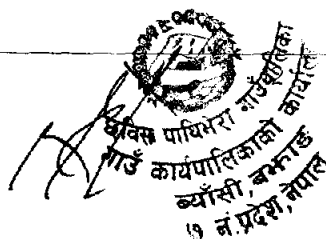 छबिस पाथिभेरा गाउँपालिका
गाउँ कार्यपालिकाको कार्यालय
ब्याँसी, बझाङ
७ नं. प्रदेश, नेपाल